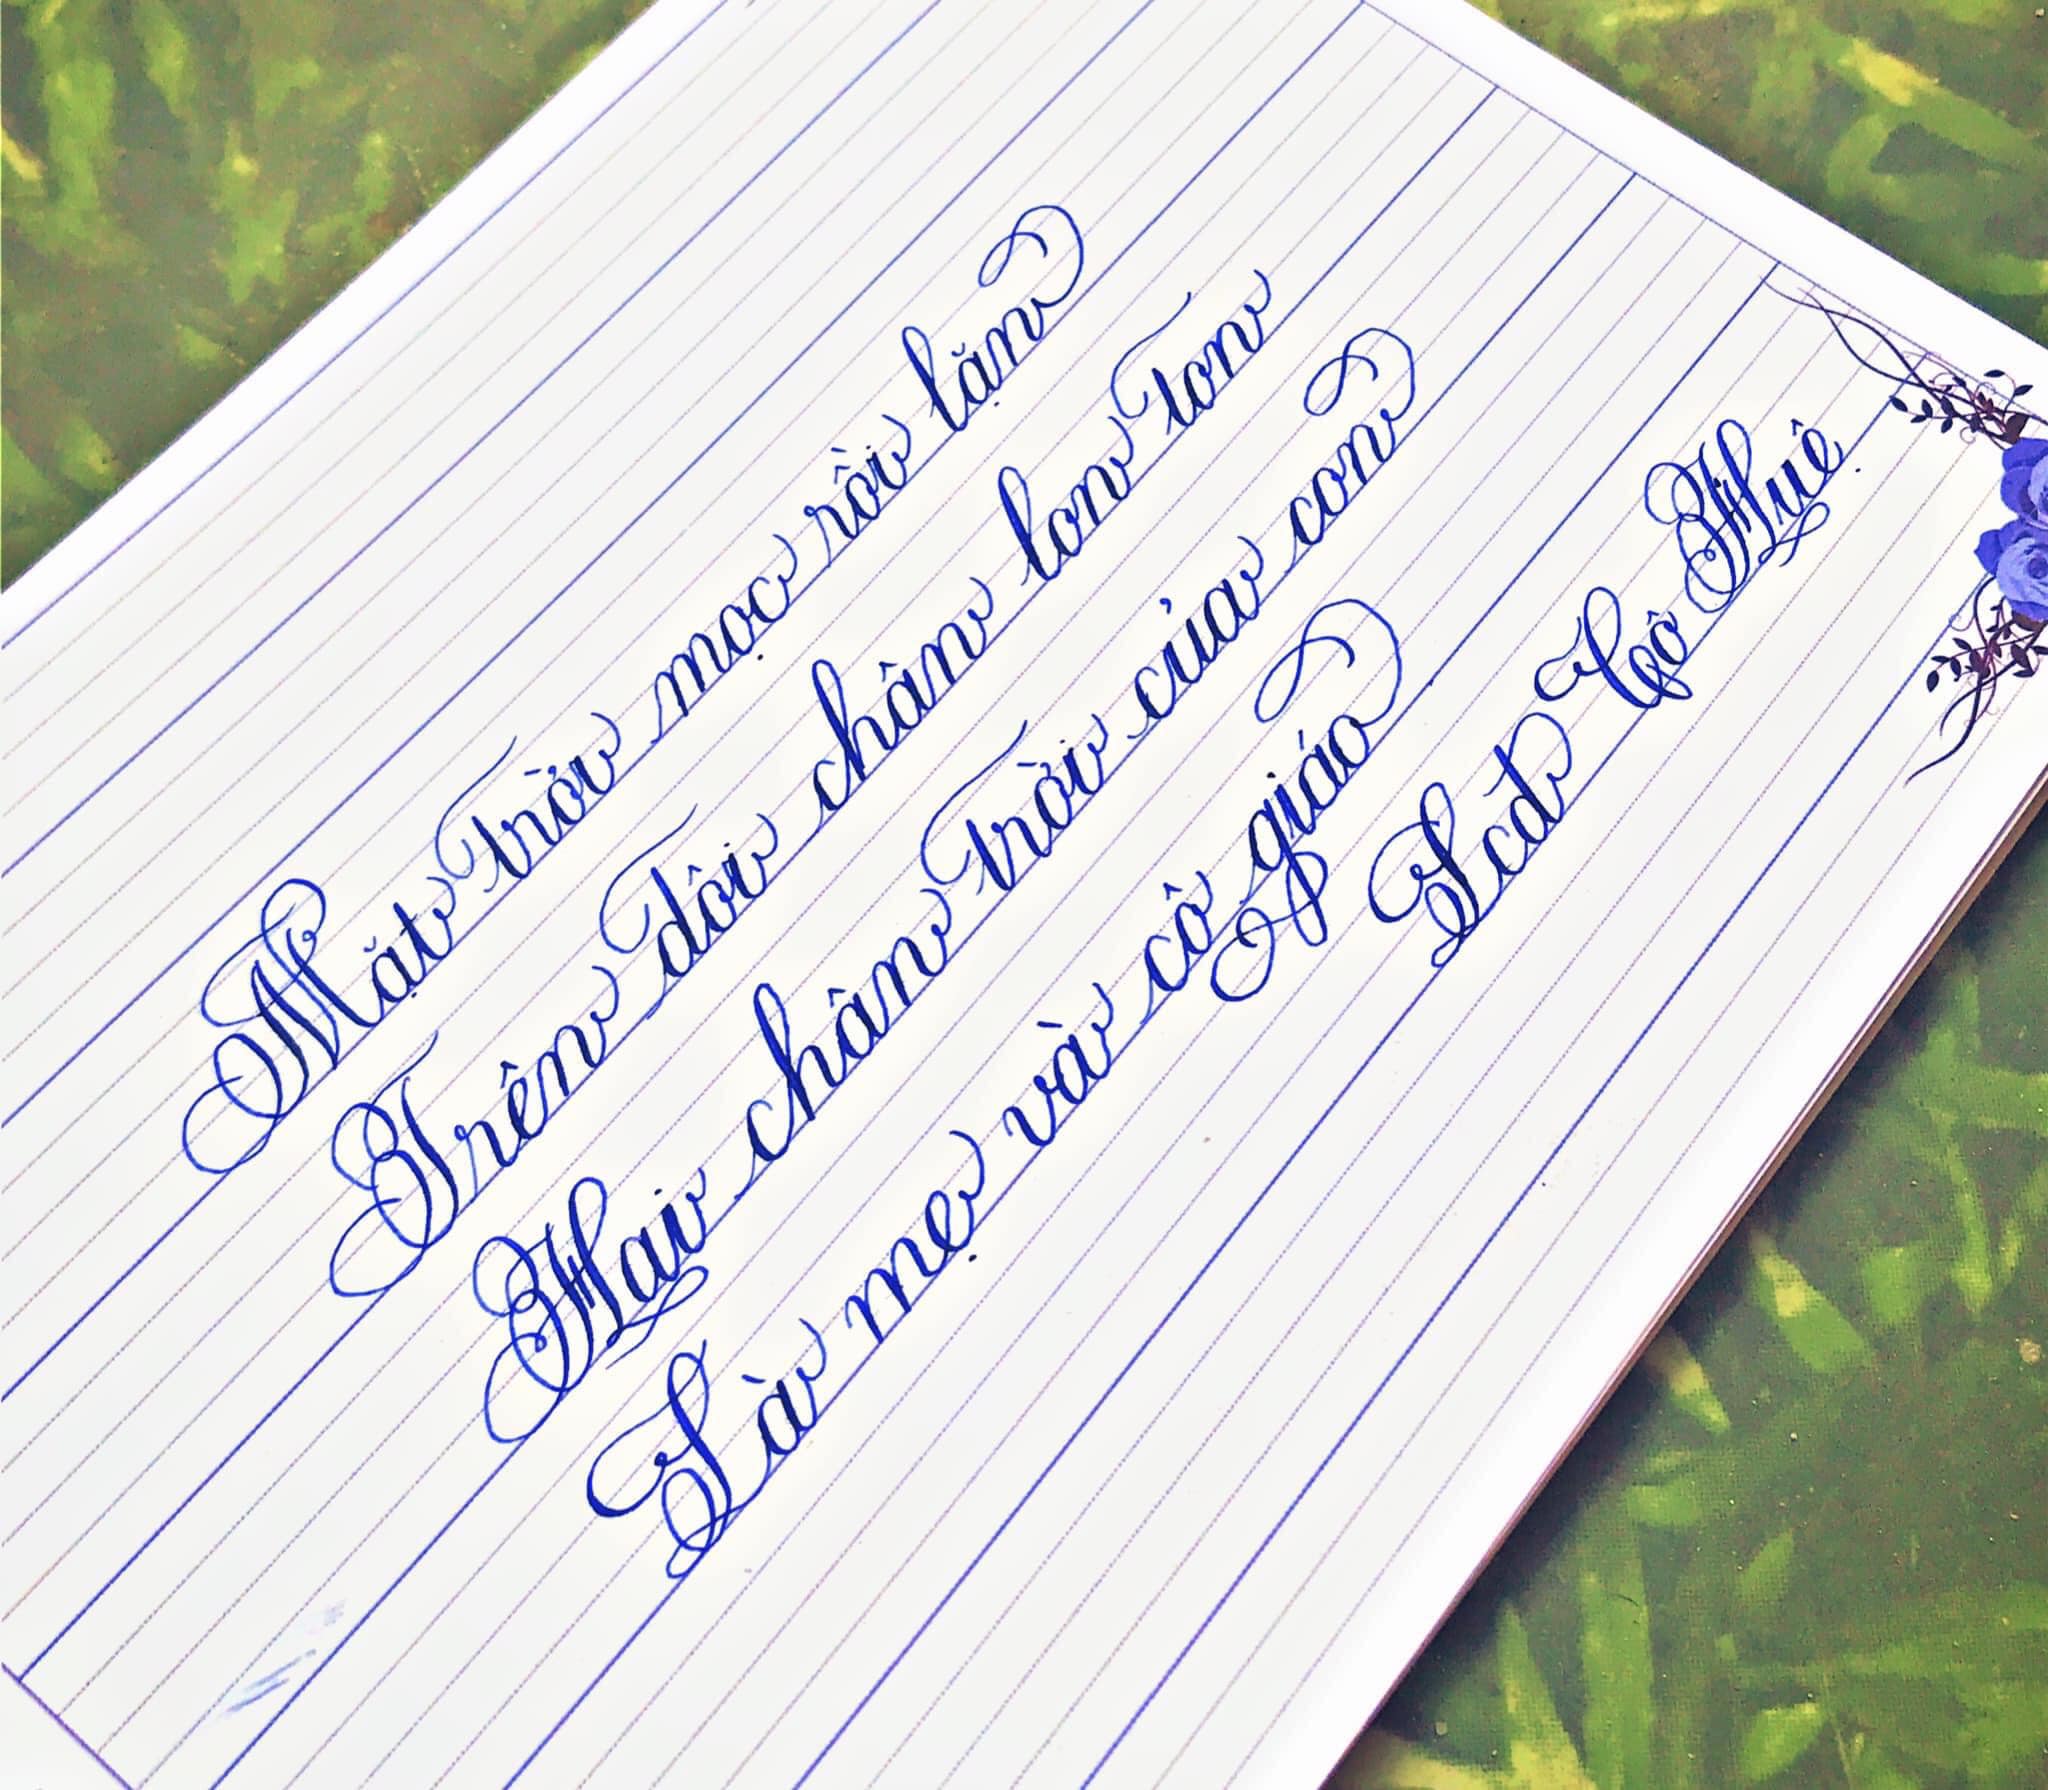 Mặt trời mọc rồi lặn
Trên đôi chân lon ton
Hai chân trời của con
Là mẹ và cô giáo
Lcđ Cô Huê.